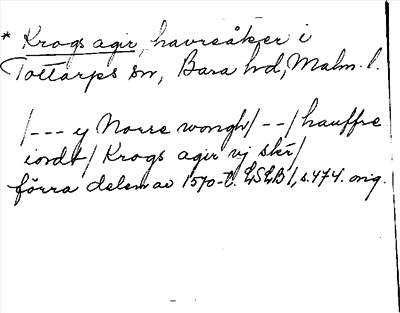 * Krogs agir, havreåker i
Tottarps sn, Bara hd, Malm. l.
/--- y Norre wongh/--/hauffre
iordt/ Krogs agir vj sk
förra delen av 1570-t. LSEB 1, s. 474. orig.